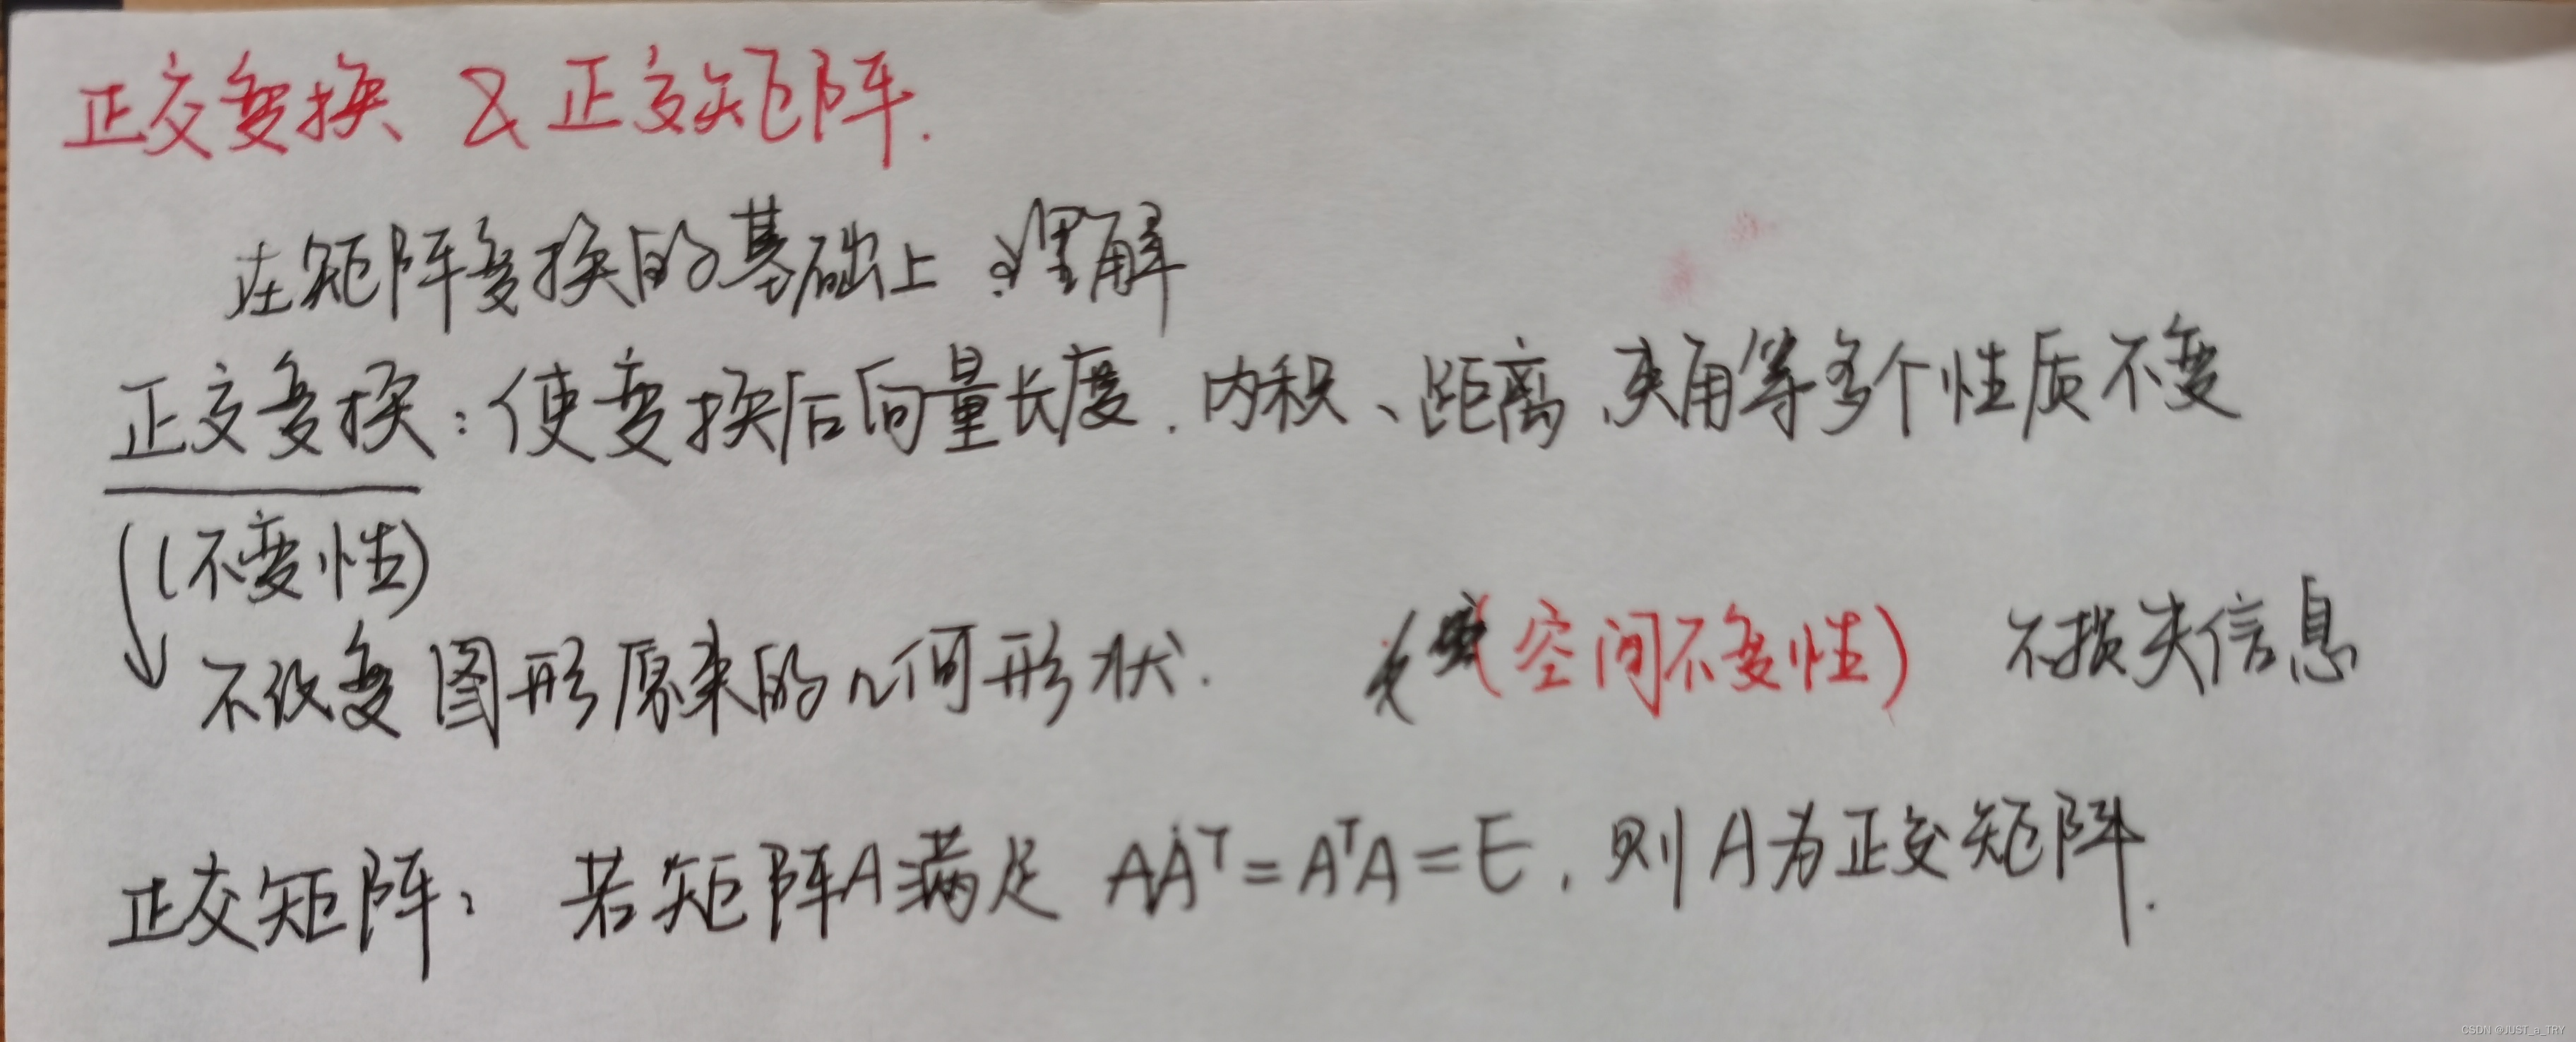 正交变换 & 正交矩阵.
在矩阵变换的基础上理解
正交变换：使变换后向量长度、内积、距离、夹角等多个性质不变
(不变性)
不改变图形原来的几何形状. (空间不变性) 不损失信息
正交矩阵： 若矩阵A满足 AAᵀ=AᵀA=E，则A为正交矩阵.
CSDN @JUST_a_TRY